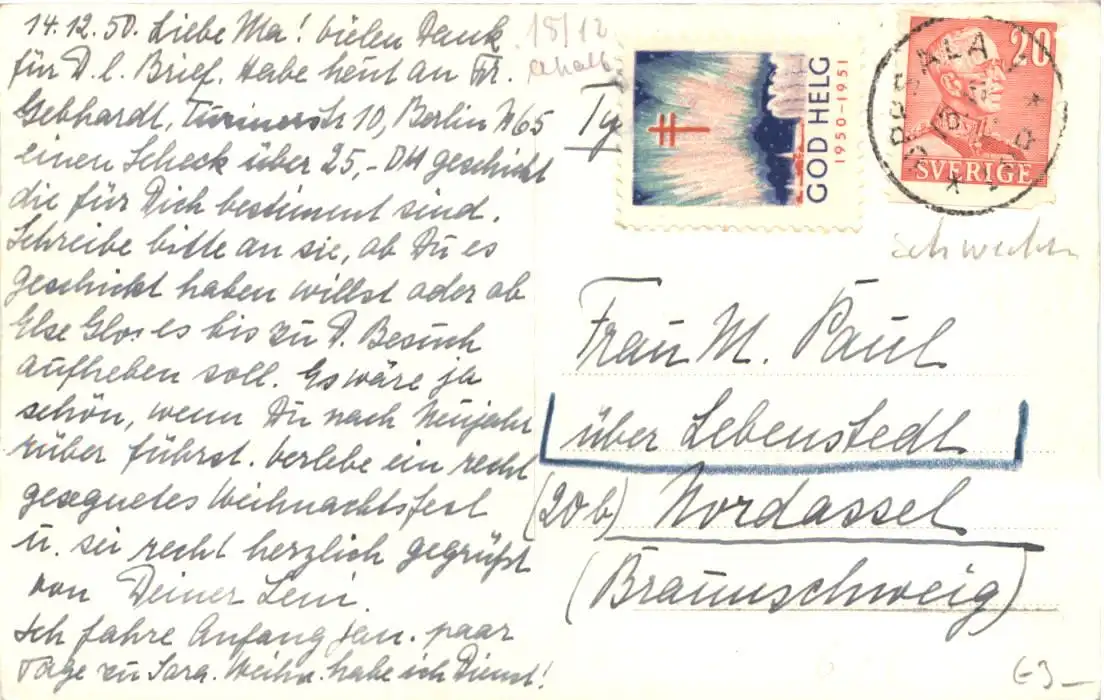 14.12.50. Liebe Ma! Vielen Dank
für D. l. Brief. Habe heut an Fr.
Gebhardt, Turinerstr 10, Berlin N65
einen Scheck über 25,- DM geschickt
die für Dich bestimmt sind.
Schreibe bitte an sie, ob Du es
geschickt haben willst oder ob
Else es bis zu D. Besuch
aufheben soll. Es wäre ja
schön, wenn Du nach Neujahr
rüber führst. Verlebe ein recht
gesegnetes Weihnachtsfest
u. sei recht herzlich gegrüßt
von Deiner Leni.
Ich fahre Anfang Jan. paar
Tage zu Sara. Weihn. habe ich Dienst!
18/12
GOD HELG
1950-1951
UPPSALA
20
SVERIGE
Schweden
Frau M. Paul
über Lebenstedt
(20b) Nordassel
(Braunschweig)
€3-